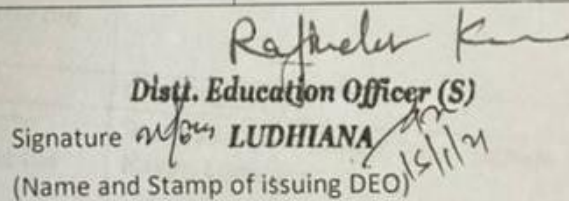 Rajinder Kaur
Distt. Education Officer (S)
Signature LUDHIANA
(Name and Stamp of issuing DEO)